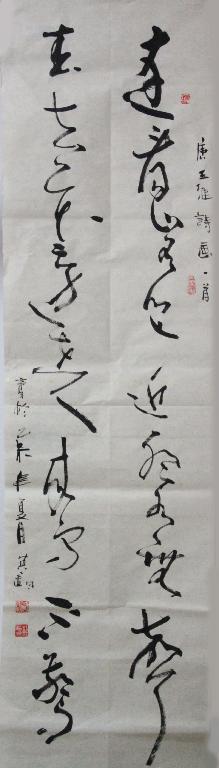 唐王維詩画一首
遠看山有色近聽水無聲
春去花還在人來鳥不驚
書於乙未年夏月